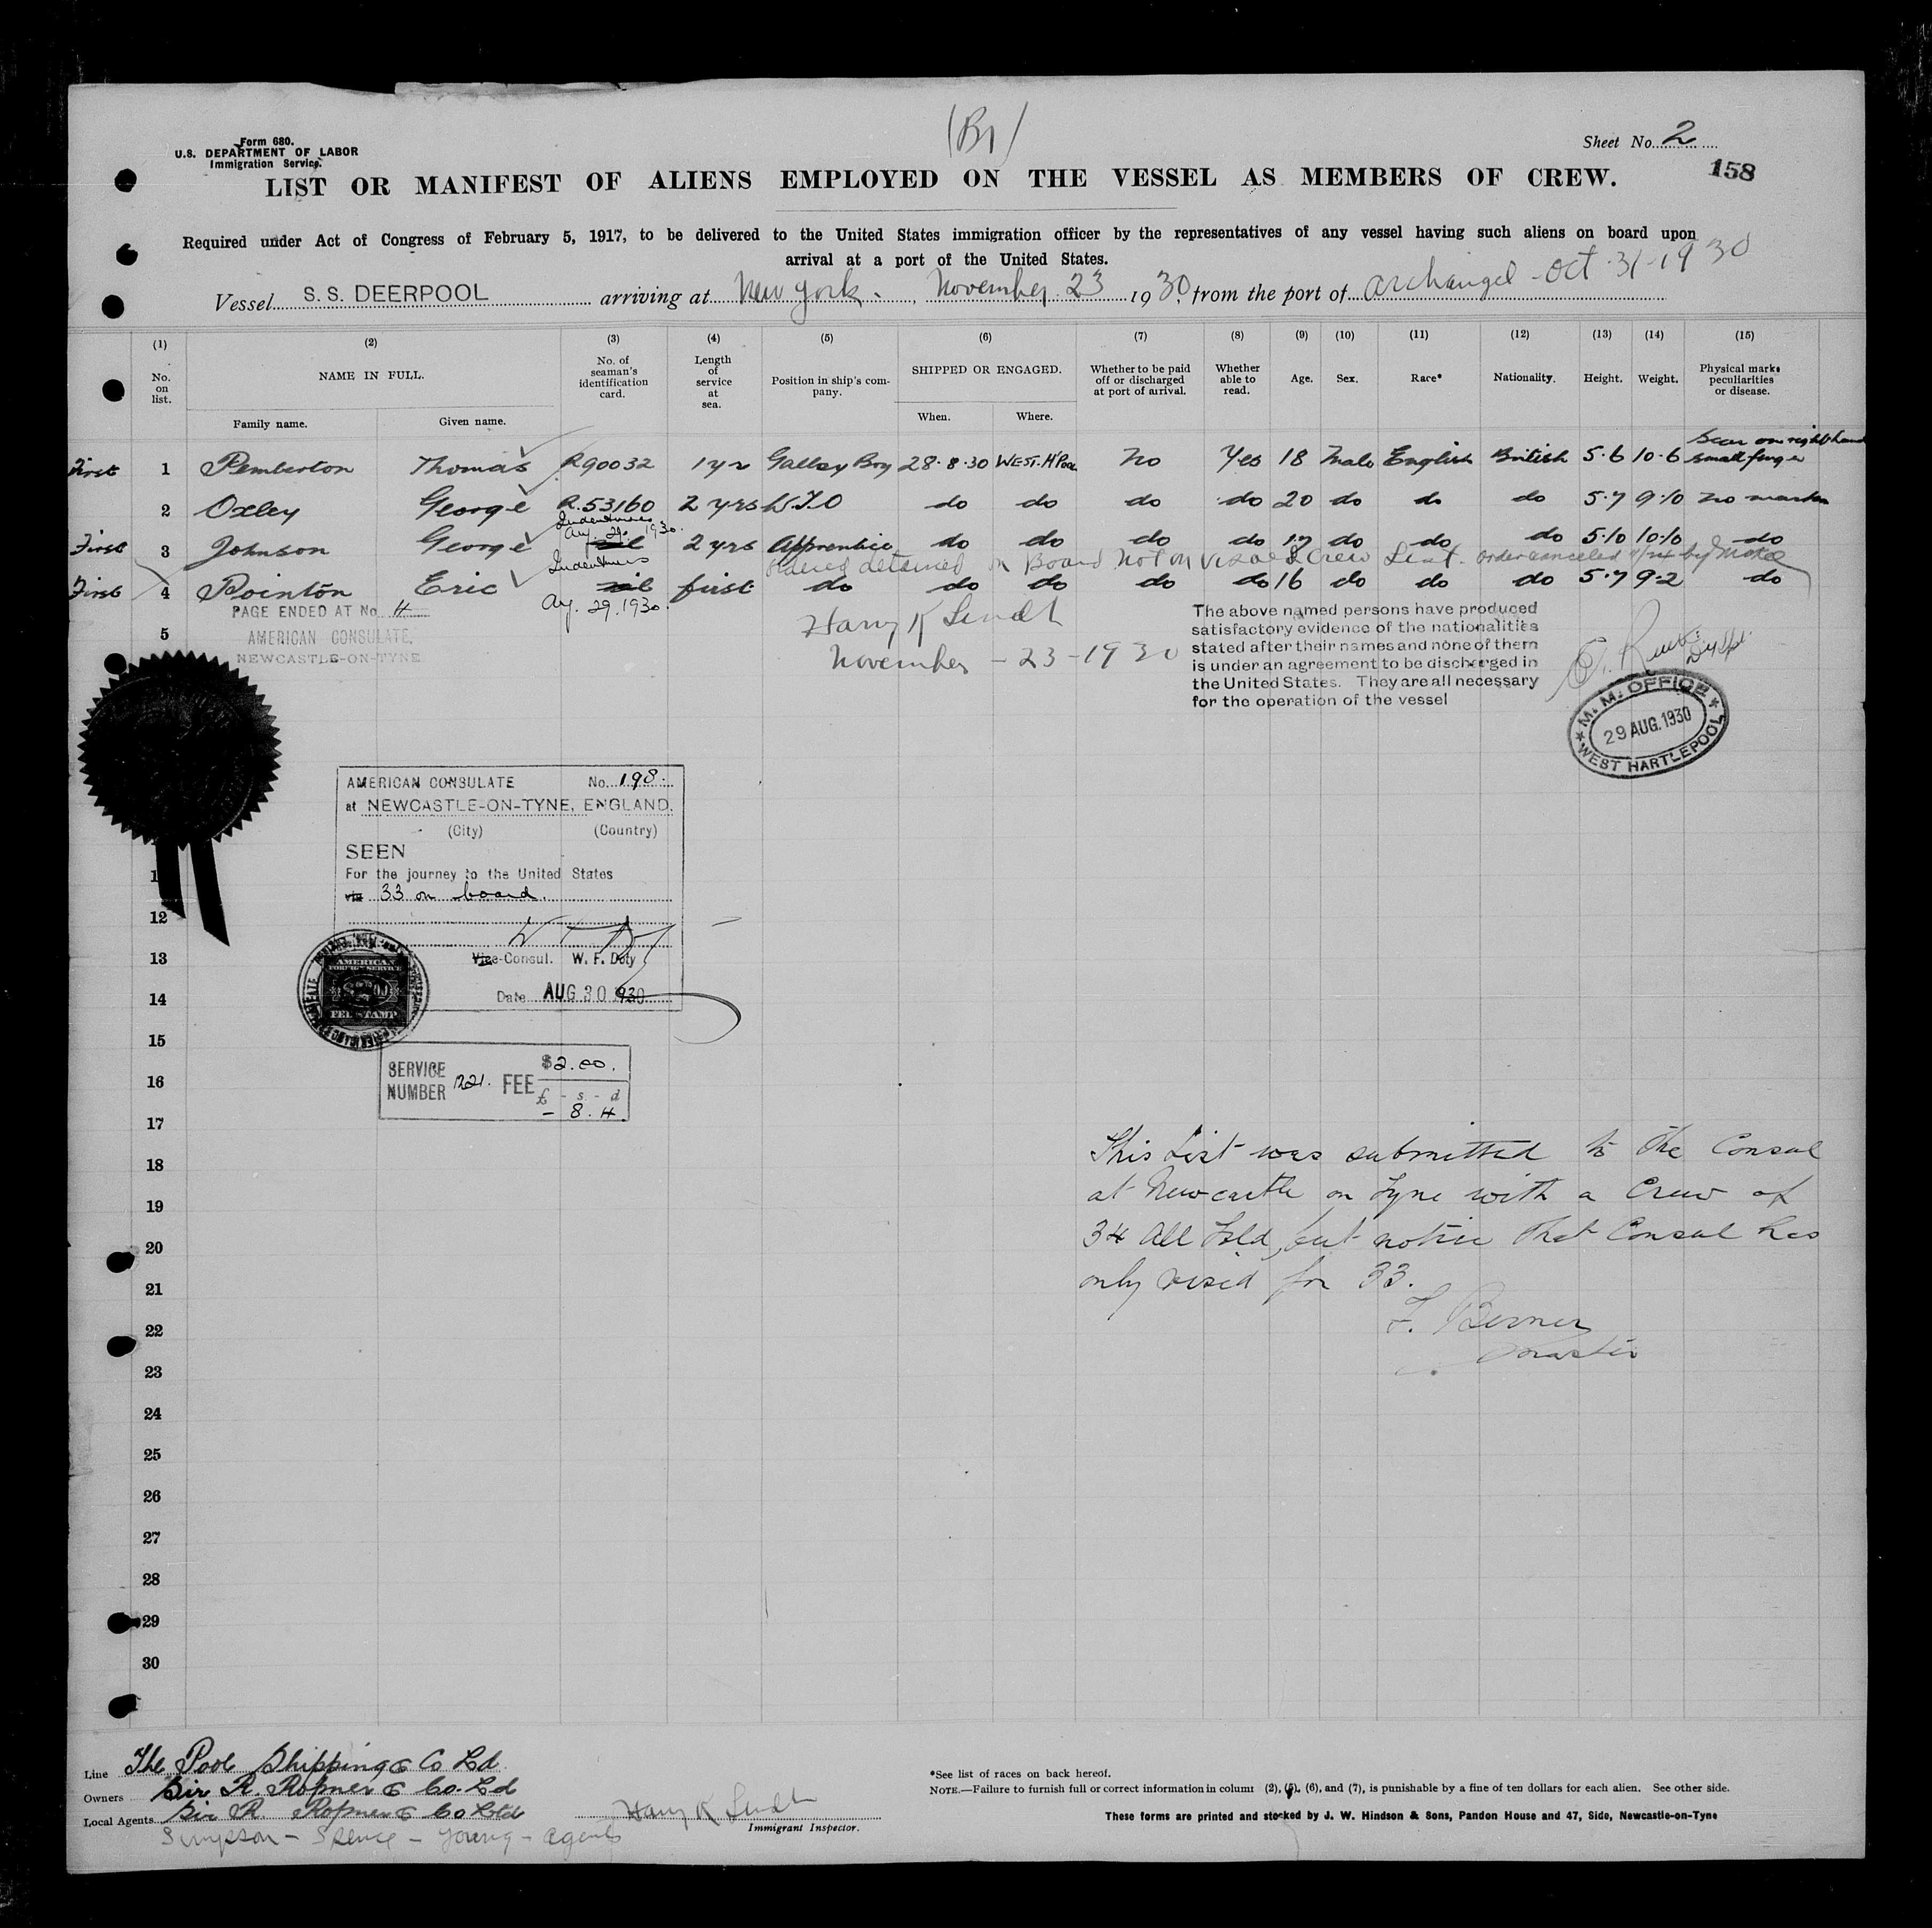 (B1)
Form 680.
U.S. DEPARTMENT OF LABOR
Immigration Service.
Sheet No. 2
158
LIST OR MANIFEST OF ALIENS EMPLOYED ON THE VESSEL AS MEMBERS OF CREW.
Required under Act of Congress of February 5, 1917, to be delivered to the United States immigration officer by the representatives of any vessel having such aliens on board upon
arrival at a port of the United States.
Vessel S. S. DEERPOOL arriving at New York. November 23 1930, from the port of Archangel - Oct-31-1930
(1) (2) (3) (4) (5) (6) (7) (8) (9) (10) (11) (12) (13) (14) (15)
No. on list. NAME IN FULL. No. of seaman's identification card. Length of service at sea. Position in ship's company. SHIPPED OR ENGAGED. Whether to be paid off or discharged at port of arrival. Whether able to read. Age. Sex. Race* Nationality. Height. Weight. Physical marks peculiarities or disease.
Family name. Given name. When. Where.
First 1 Pemberton Thomas R90032 1 yr Galley Boy 28·8·30 WEST. H'Pool No Yes 18 Male English British 5·6 10·6 Scar on right hand small finger
2 Oxley George R.53160 2 yrs W.T.O do do do do 20 do do do 5·7 9·10 no marks
Indentures
Aug. 29. 1930.
First 3 Johnson George nil 2 yrs Apprentice do do do do 17 do do do 5·10 10·10 do
Ordered detained on Board not on visaed Crew List. order canceled by
Indentures
First 4 Pointon Eric nil first do do do do do 16 do do do 5·7 9·2 do
Aug. 29. 1930.
PAGE ENDED AT No. 4
AMERICAN CONSULATE,
NEWCASTLE-ON-TYNE
5
Harry K Lendt
November - 23 - 1930
The above named persons have produced
satisfactory evidence of the nationalities
stated after their names and none of them
is under an agreement to be discharged in
the United States. They are all necessary
for the operation of the vessel
M. M. OFFICE
29 AUG. 1930
WEST HARTLEPOOL
AMERICAN CONSULATE No. 198.
at NEWCASTLE-ON-TYNE, ENGLAND.
(City) (Country)
SEEN
For the journey to the United States
via 33 on board.
Vice-Consul. W. F. Doty
Date AUG 30 1930
AMERICAN
FOREIGN SERVICE
FEE STAMP
SERVICE NUMBER 1221. FEE $2.00.
£ - s. - d
- 8. 4.
12
13
14
15
16
17
18
19
20
21
22
23
24
25
26
27
28
29
30
This List was submitted to the Consul
at Newcastle on Tyne with a Crew of
34 All Told, but notice that Consul has
only visied for 33.
F. Berner
Master
Line The Pool Shipping Co Ld
Owners Sir R. Ropner & Co. Ld
Local Agents Sir R Ropner & Co Ltd
Simpson - Spence - Young - agents
Harry K Lendt
Immigrant Inspector.
*See list of races on back hereof.
NOTE.—Failure to furnish full or correct information in column (2), (5), (6), and (7), is punishable by a fine of ten dollars for each alien. See other side.
These forms are printed and stocked by J. W. Hindson & Sons, Pandon House and 47, Side, Newcastle-on-Tyne